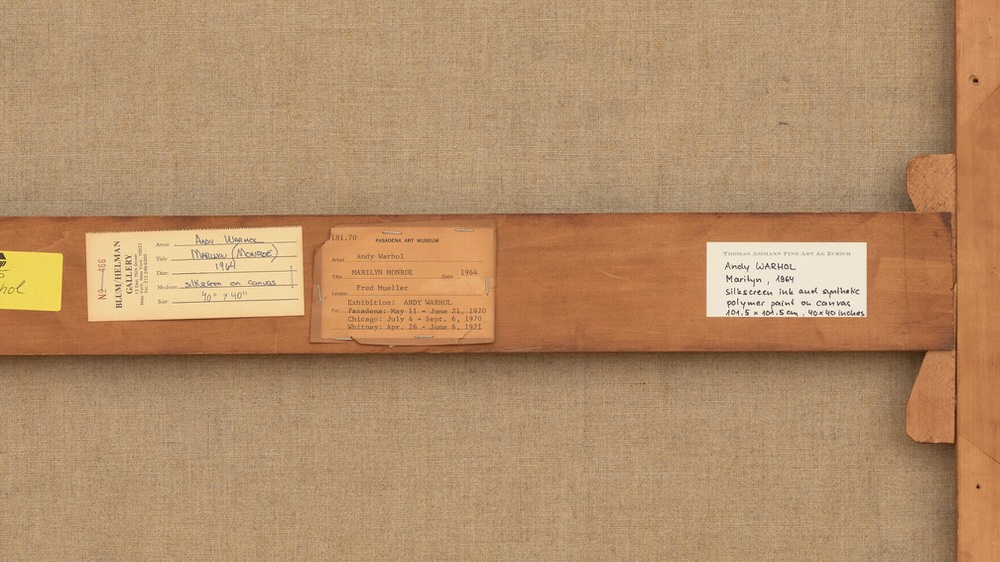 5
hol
No 466
BLUM/HELMAN
GALLERY
Artist: Andy Warhol
Title: Marilyn (Monroe)
Date: 1964
Medium: silkscreen on canvas
Size: 40" x 40"
181.70
PASADENA ART MUSEUM
Artist Andy Warhol
Title MARILYN MONROE Date 1964
Lender Fred Mueller
Exhibition: ANDY WARHOL
For Pasadena: May 11 - June 21, 1970
Chicago: July 4 - Sept. 6, 1970
Whitney: Apr. 26 - June 6, 1971
THOMAS AMMANN FINE ART AG ZURICH
Andy WARHOL
Marilyn, 1964
silkscreen ink and synthetic
polymer paint on canvas
101.5 x 101.5 cm, 40x40 inches